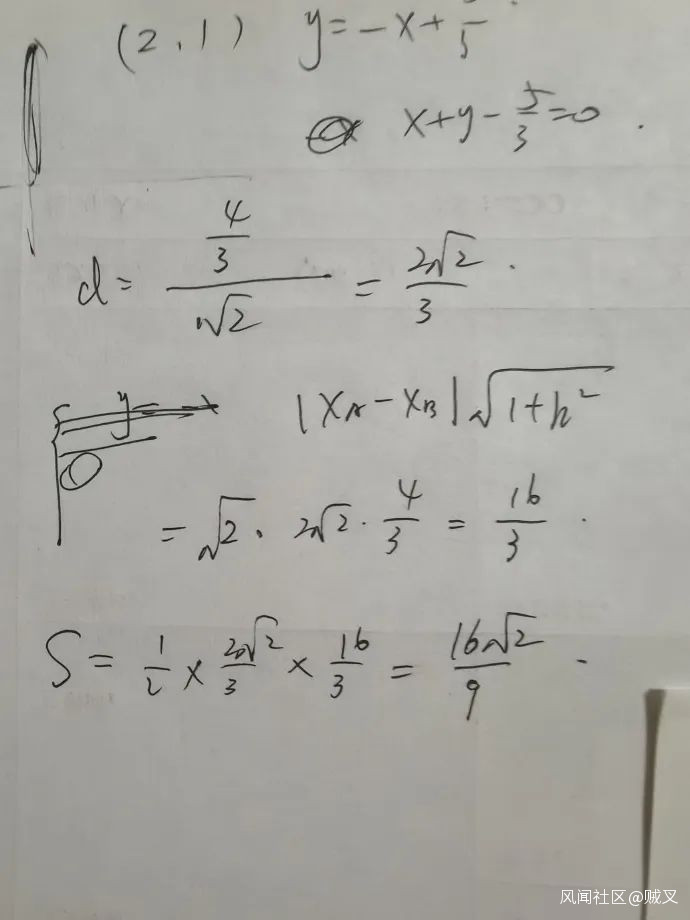 (2,1) y=-x+
x+y-5/3=0.
d= (4/3)/√2 = 2√2/3.
y=
|xA-xB|√1+k²
=√2.2√2·4/3=16/3.
S=1/2×2√2/3×16/3=16√2/9.
风闻社区@贼叉